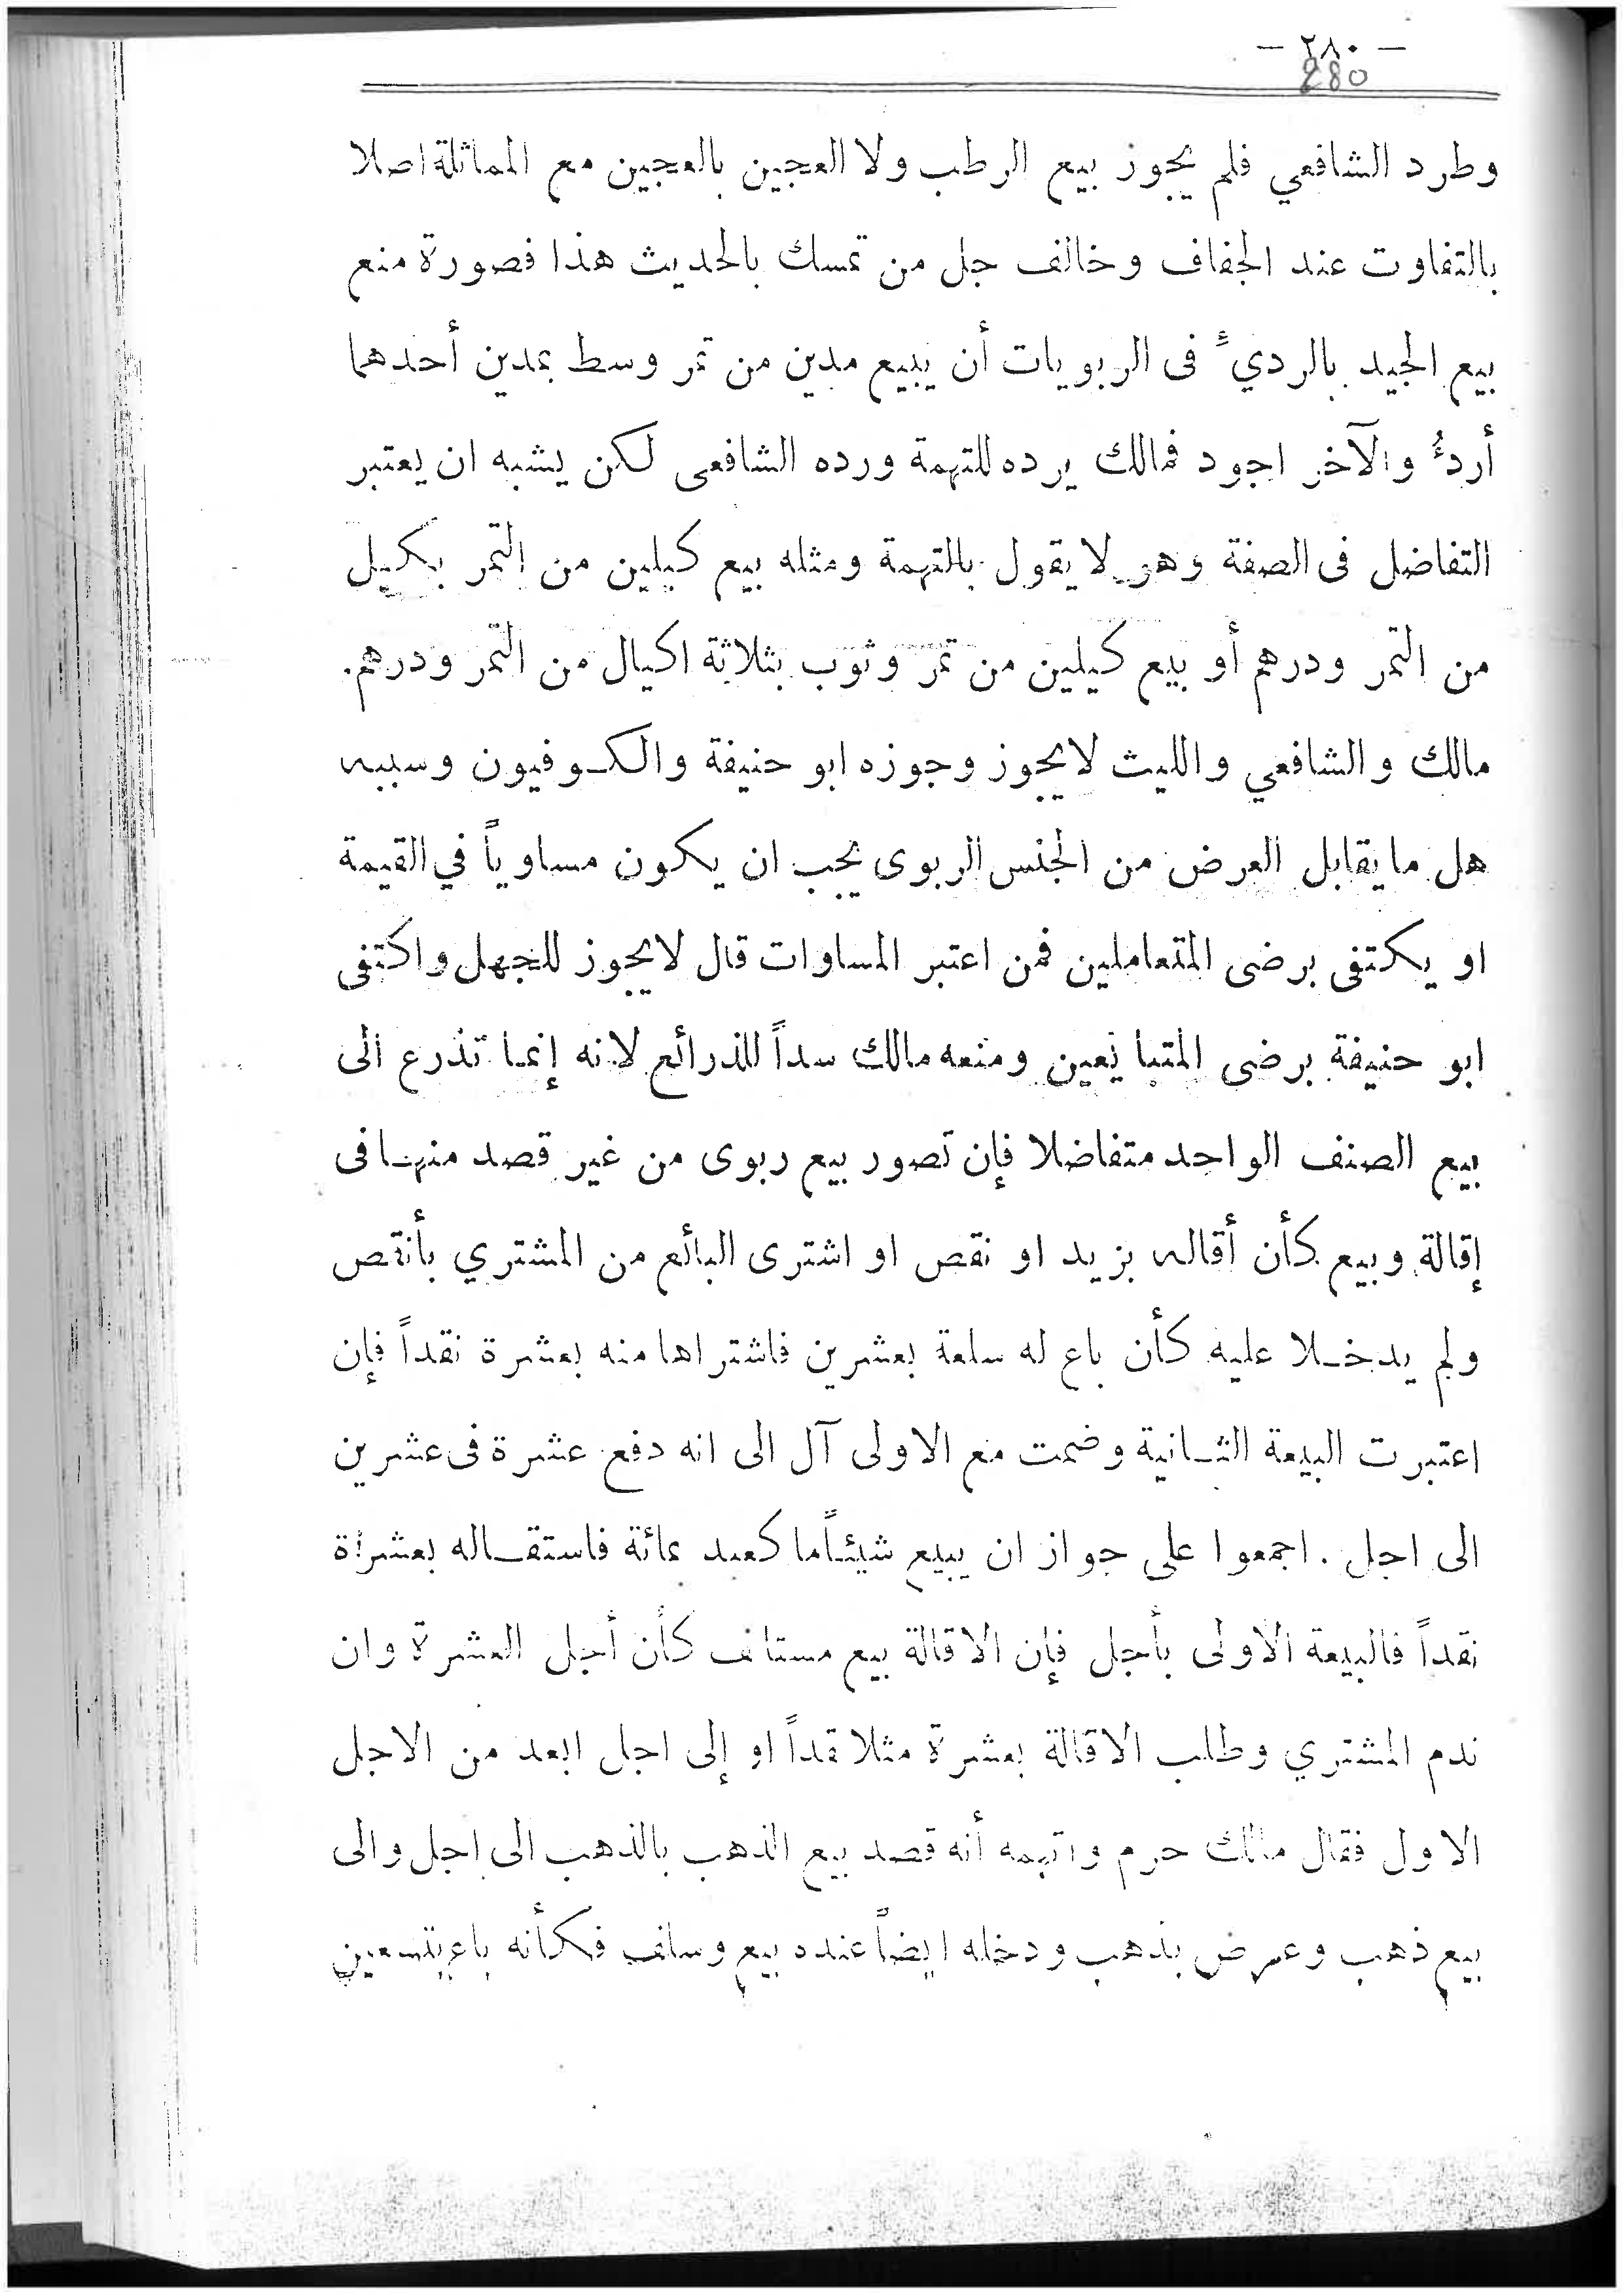 — ٢٨٠ —
280
وطرد الشافعي فلم يجوز بيع الرطب ولا العجين بالعجين مع المماثلة اصلا
بالتفاوت عند الجفاف وخالف جل من تمسك بالحديث هذا فصورة منع
بيع الجيد بالرديء فى الربويات أن يبيع مدين من تمر وسط بمدين أحدهما
أردءُ والآخر اجود فمالك يرده للتهمة ورده الشافعى لكن يشبه ان يعتبر
التفاضل فى الصفة وهو لا يقول بالتهمة ومثله بيع كيلين من التمر بكيل
من التمر ودرهم أو بيع كيلين من تمر وثوب بثلاثة اكيال من التمر ودرهم.
مالك والشافعي والليث لايجوز وجوزه ابو حنيفة والكوفيون وسببه
هل مايقابل العرض من الجنس الربوى يجب ان يكون مساوياً في القيمة
او يكتفى برضى المتعاملين فمن اعتبر المساوات قال لايجوز للجهل واكتفى
ابو حنيفة برضى المتبايعين ومنعه مالك سداً للذرائع لانه إنما تذرع الى
بيع الصنف الواحد متفاضلا فإن تصور بيع ربوى من غير قصد منهما فى
إقالة وبيع كأن أقاله بزيد او نقص او اشترى البائع من المشتري بأنقص
ولم يدخلا عليه كأن باع له سلعة بعشرين فاشتراها منه بعشرة نقداً فإن
اعتبرت البيعة الثانية وضمت مع الاولى آل الى انه دفع عشرة فى عشرين
الى اجل . اجمعوا على جواز ان يبيع شيئاً ما كعبد بمائة فاستقاله بعشرة
نقداً فالبيعة الاولى بأجل فإن الاقالة بيع مستانف كأن أجل العشرة وان
ندم المشتري وطلب الاقالة بعشرة مثلا نقداً او إلى اجل ابعد من الاجل
الاول فقال مالك حرم واتهمه أنه قصد بيع الذهب بالذهب الى اجل والى
بيع ذهب وعرض بذهب ودخله ايضاً عنده بيع وسلف فكأنه باع بتسعين